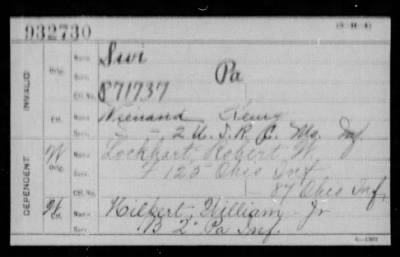 932730
INVALID
Orig. Name Suvi
Serv. Pa
Ctf. No. 871737
Ctf. Name Wienand Henry
Serv. 2 U.S.R.C. Mo. Inf
DEPENDENT
W Orig. Name Lockhart, Robert W.
Serv. F 125 Ohio Inf
Ctf. No. 87 Ohio Inf,
W Ctf. Name Hilbert, William Jr
Serv. B 2" Pa Inf.